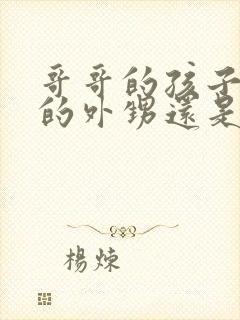 哥哥的孩子
的外甥還是
楊煉